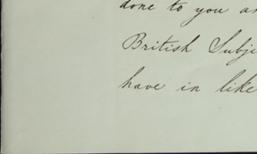 done to you an
British Subje
have in like